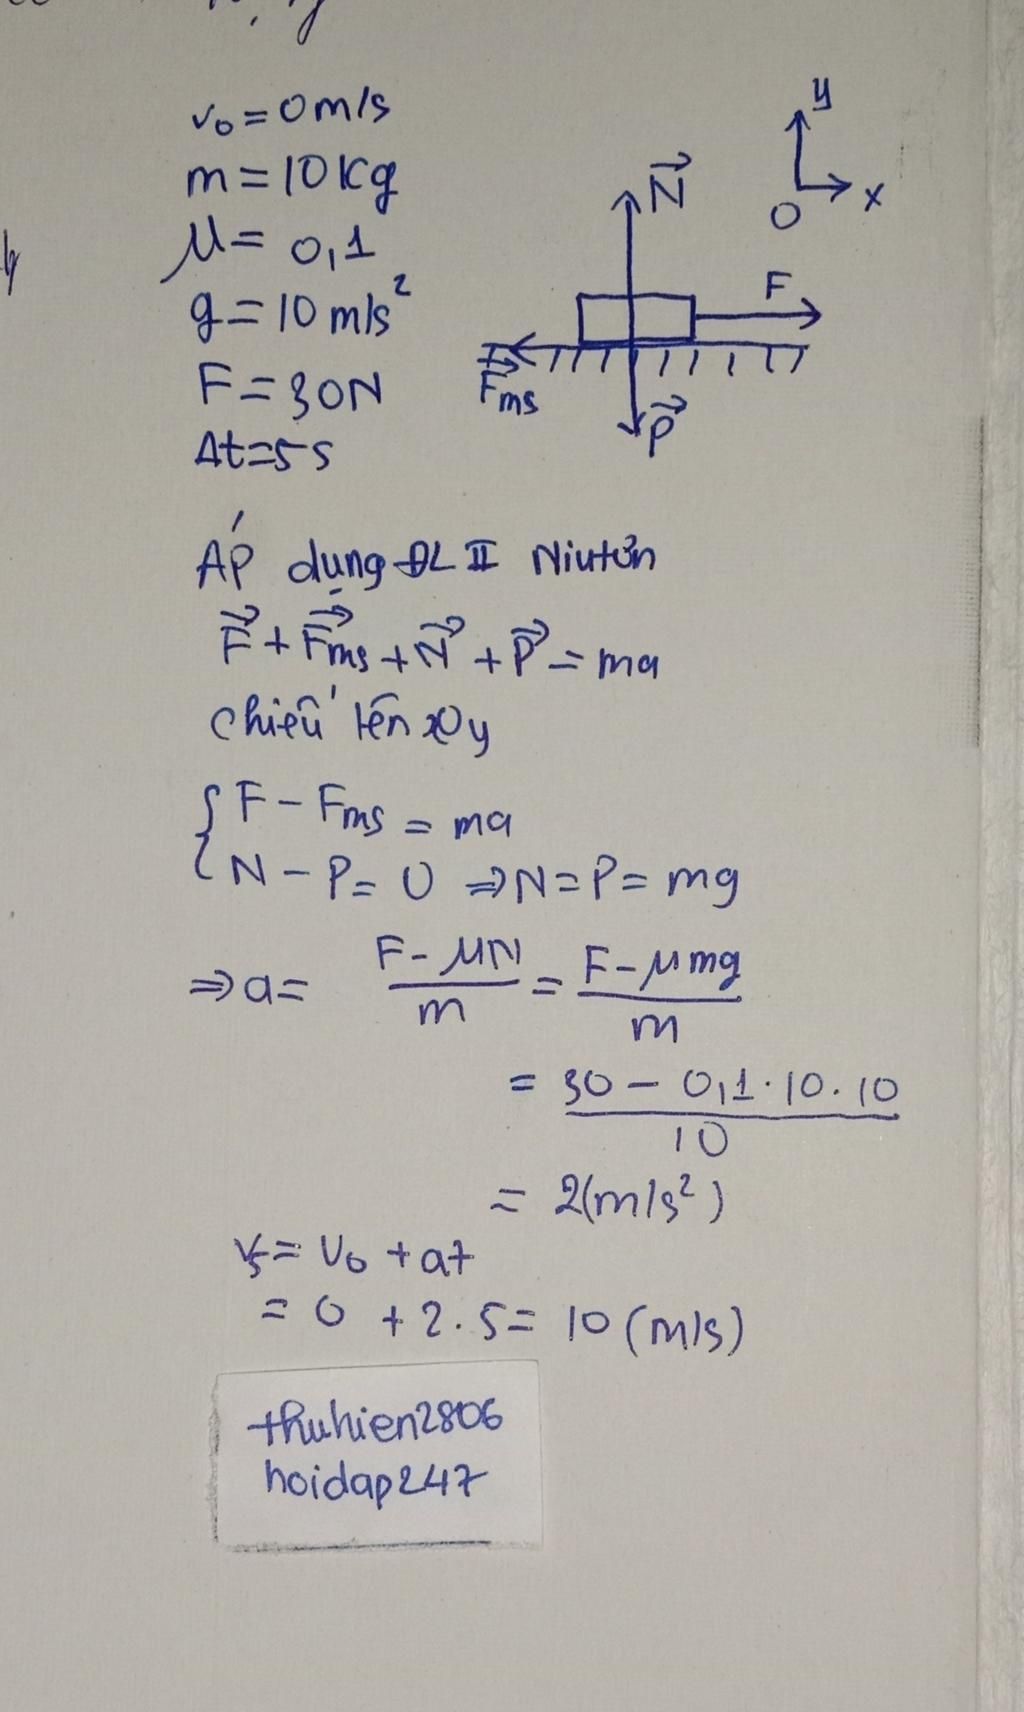 v₀ = 0 m/s
m = 10 kg
μ = 0,1
g = 10 m/s²
F = 30N
Δt = 5s
y
x
O
N⃗
F
F⃗ms
P⃗
Áp dụng ĐL II Niutơn
F⃗ + F⃗ms + N⃗ + P⃗ = ma
chiếu lên xOy
{ F - Fms = ma
N - P = 0 ⇒ N = P = mg
⇒ a = (F - μN)/m = (F - μmg)/m
= (30 - 0,1 . 10 . 10)/10
= 2(m/s²)
v₅ = v₀ + at
= 0 + 2 . 5 = 10 (m/s)
thuhien2806
hoidap247